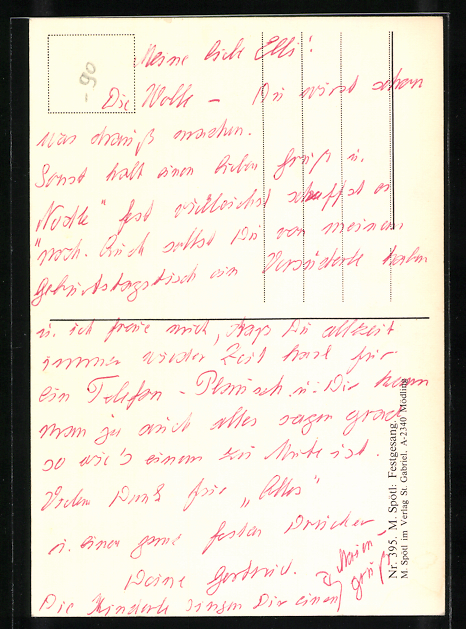 -90
Meine liebe Elli!
Die Wolle - Du wirst schon
was draus machen.
Sonst halt einen lieben Gruß u.
fest vielleicht schaffst es
noch. Auch sollst Du von meinem
Geburtstagstisch ein haben
u. ich freue mich, daß Du allzeit
immer wieder Zeit hast für
ein Telefon - u. Dir kann
man ja auch alles sagen grad
so wie's einem zu Mute ist.
Vielen Dank für "Alles"
u. einen ganz festen Drücker
Deine Gertrud.
Die Kinderle singen Dir einen
Marien-
gruß
Nr. 395. M. Spötl: Festgesang.
M. Spötl im Verlag St. Gabriel, A-2340 Mödling